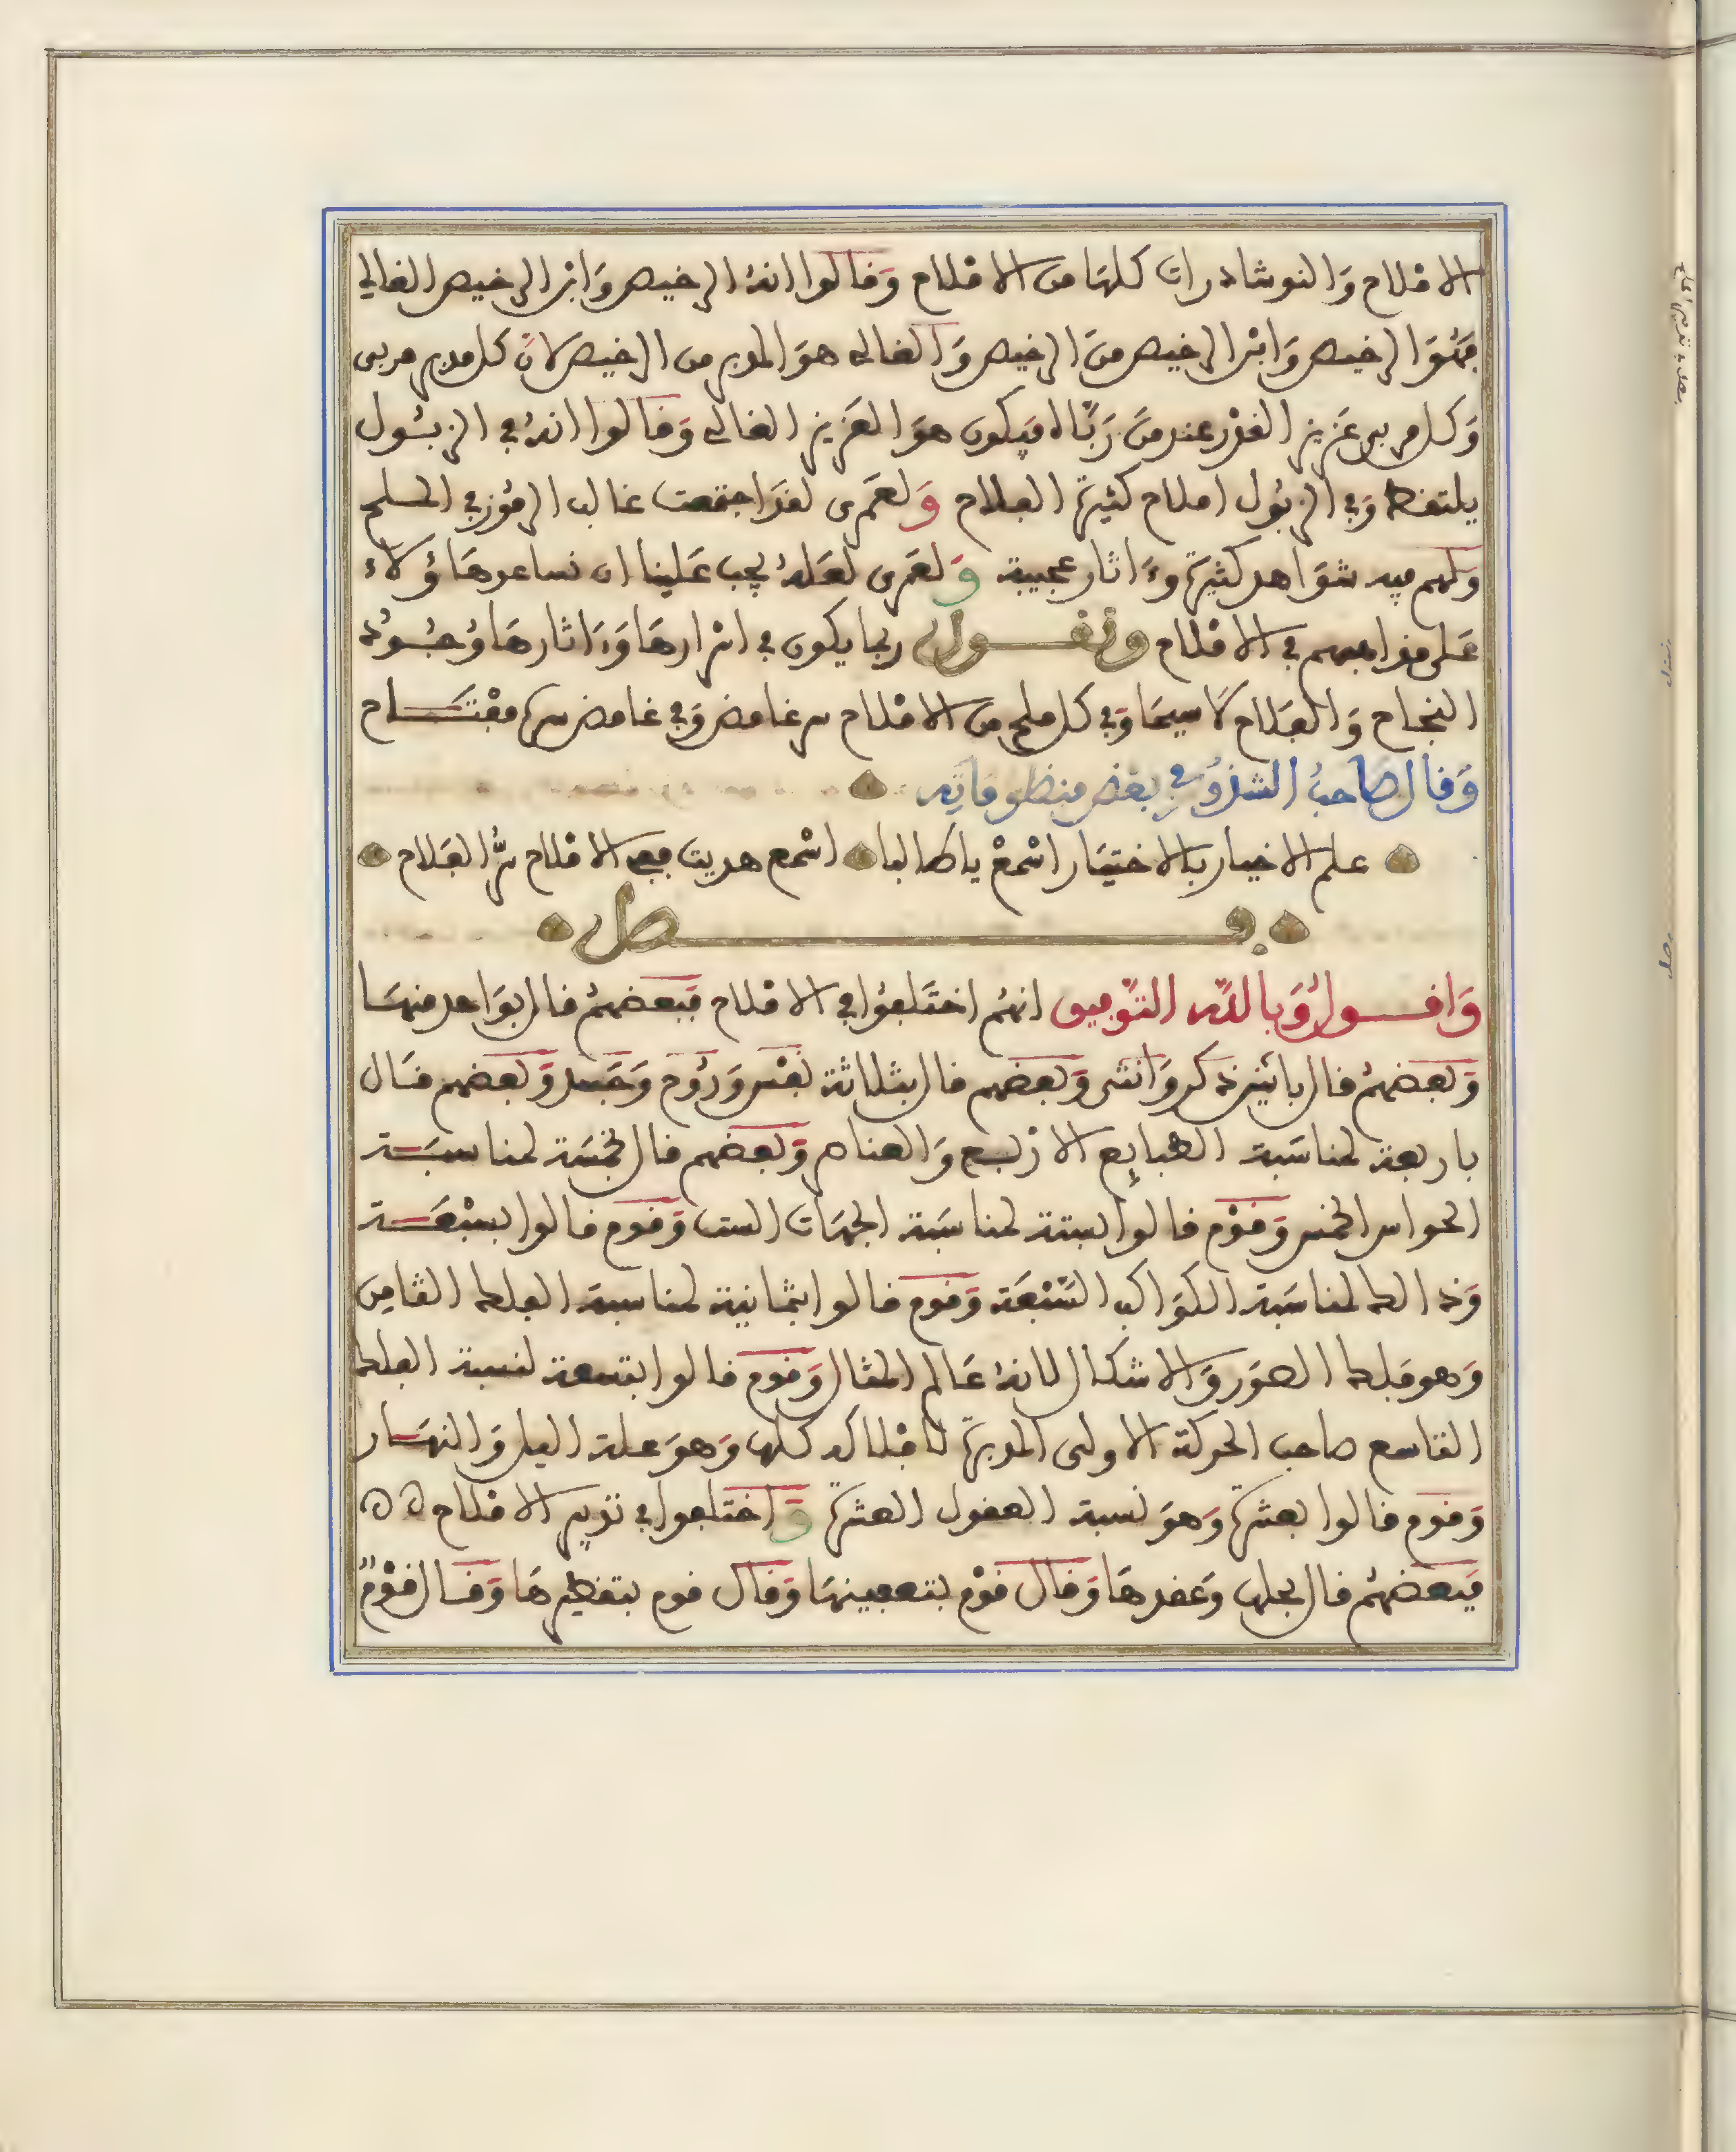 الاملاح وَالنوشادرات كلهَا من الاملاح وَقالوا انهُ الرخيص وَابْن الرخيص الغالي
فَهُوَ الرخيص وَابْن الرخيص منَ الرخيص وَالغالى هوَ المدبر من الرخيص لانّ كل مدبر مربى
وَكل مربى عَزيز القدْر عند مَنْ رَبَّاه فيَكون هوَ العَزيز الغالى وَقالوا انهُ في الزبُول
يلتقط وَفي الزبُول املاح كثيرة الفلاح وَلعَمْرى لقدَ اجتمعت غالب الرمُوز في الملح
وَلهم فيه شوَاهد كثيرَة وَءَاثار عجيبة وَلعَمرى لعَلهُ يجب عَلينا ان نساعد هَاؤُلاء
عَلى مذاهبهم في الاملاح ونقول ربما يكون في اسْرارهَا وَءَاثارهَا وُجُوُه
النجَاح وَالفَلاح لاَ سيمَا وَفي كل ملح من الاملاح سر غامض وَفي غامض سره مفْتَاح
وَقال صَاحبُ الشذُوُر في بعَض منظومَاتِه
علم الاخيار بالاختيَار اسْمعْ ياطالبا اسْمع هديت ففي الاملاح سرُّ الفَلاح
فصل
وَاقول وَبالله التَّوفيق انهُم اختَلفُوا في الاملاح فبَعضهُم قال بوَاحد منهَا
وَبعَضهمُ قال باثنين ذكر وَانثى وَبعضهم قال بثلاثة نفْس وَرُوح وَجَسد وَبعضهم قَال
باربعة لمناسَبة الطبايع الارْبع وَالعناصر وَبعضهم قال بخمسَة لمناسبَة
الحواس الخمس وَقوْم قالوا بستة لمناسَبة الجهَات الست وَقوم قالوا بسبْعَة
وَذالك لمناسَبة الكوَاكب السَّبْعَة وَقوم قالوا بثمَانية لمناسبة الفلك الثامِن
وَهو فَلك الصوَر وَالاشكال لانهُ عَالم المثال وَقوم قالوا بتسعة لنسبة الفلك
التاسع صاحب الحركة الاولى المدبرَة للافْلاك كلها وَهوَ علة اليل وَالنهَار
وَقوم قالوا بعشرَة وَهوَ نسبة العقول العشرة وَاختلفوا في تدَبير الاملاح
فبَعضهُم قال بحلها وَعقدهَا وَقال قوْم بتعفينهَا وَقال قوم بتقطيرهَا وَقال قوْمٌ